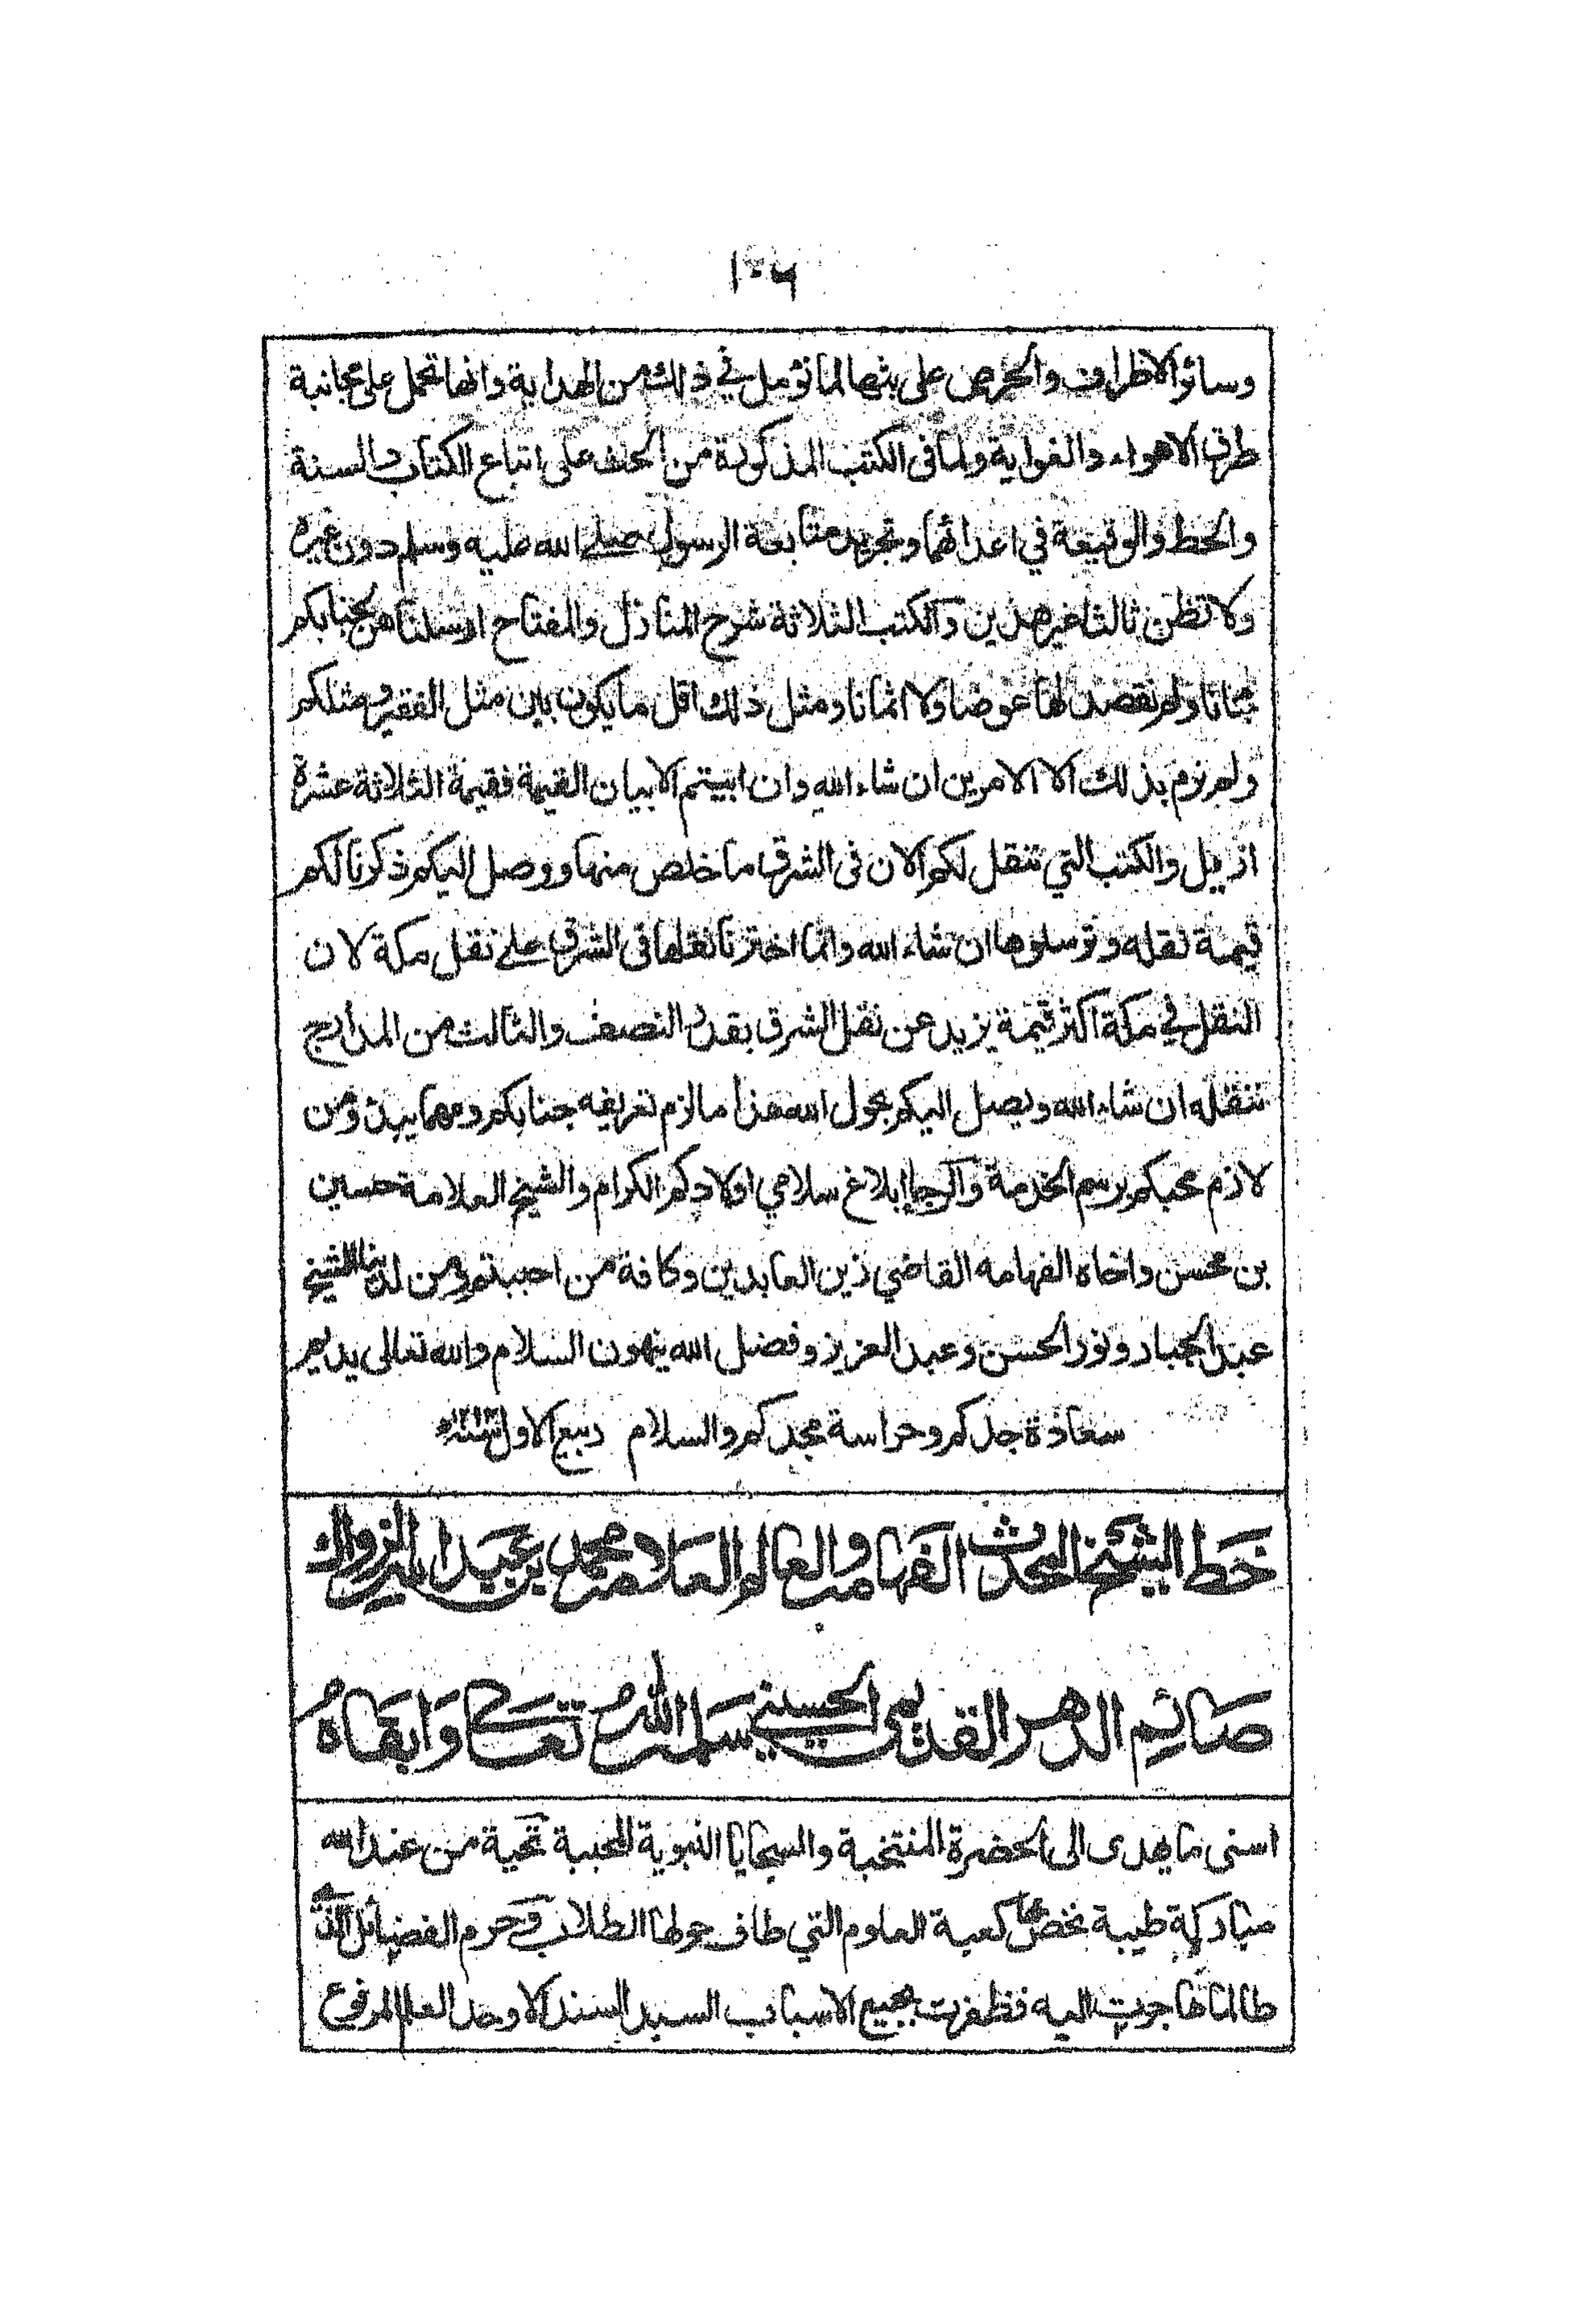 ١٠٦
وسائر الاطراف والحرص على بثها لما نؤمل في ذلك من الهداية وانها تحمل على مجانبة
طرق الاهواء والغواية ولما فى الكتب المذكورة من الحث على اتباع الكتاب والسنة
والحط والوقيعة في اعدائهما وتجريد متابعة الرسول صلى الله عليه وسلم دون غيره
ولا تظن ثالثا غير هذين والكتب الثلاثة شرح المنازل والمفتاح ارسلناهن لجنابكم
مجانا ولم نقصد لها عوضا ولا اثمانا ومثل ذلك اقل ما يكون بين مثل الفقير ومثلكم
ولم نرم بذلك الا الامرين ان شاء الله وان ابيتم الا بيان القيمة فقيمة الثلاثة عشرة
ازيل والكتب التي تنقل لكم الان فى الشرق ما خلص منها ووصل اليكم ذكرنا لكم
قيمة نقله وترسلوها ان شاء الله وانما اخترنا نقلها فى الشرق على نقل مكة لان
النقل في مكة اكثر قيمة يزيد عن نقل الشرق بقدر النصف والثالث من المدارج
ننقله ان شاء الله ويصل اليكم بحول الله هذا ما لزم تعريفه جنابكم ومهما يبدو من
لازم محبكم برسم الخدمة والرجا ابلاغ سلامي اولادكم الكرام والشيخ العلامة حسين
بن محسن واخاه الفهامه القاضي زين العابدين وكافة من احببتم ومن لدينا الشيخ
عبد الجبار ونور الحسن وعبد العزيز وفضل الله ينهون السلام والله تعالى يديم
سعادة جدكم وحراسة مجدكم والسلام ربيع الاول
خط الشيخ المحدث الفهامة والعالم العلامة محمد بن عبد الله الزواك
صائم الدهر القديمى الحسيني سلمه الله تعالى وابقاه
اسنى ما يهدى الى الحضرة المنتخبة والسجايا النبوية المحببة تحية من عند الله
مباركة طيبة نخص بها كعبة العلوم التي طاف حولها الطلاب في حرم الفضائل الذي
طالما هاجرت اليه فظفرت بجميع الاسباب السيد السند الاوحد العلم المرفوع